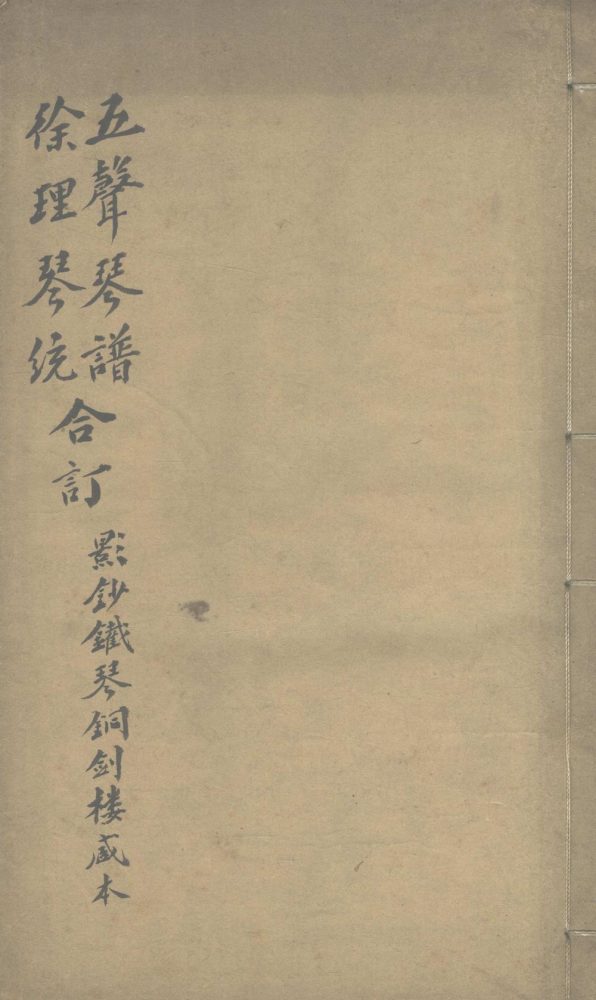 五聲琴譜
徐理琴統
合訂
影鈔鐵琴銅劍樓藏本